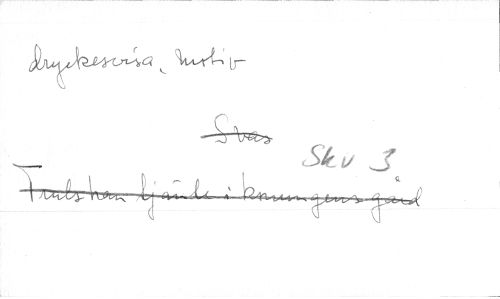 dryckesvisa, motiv
Svas
Skv 3
Truls han tjänte i konungens gård